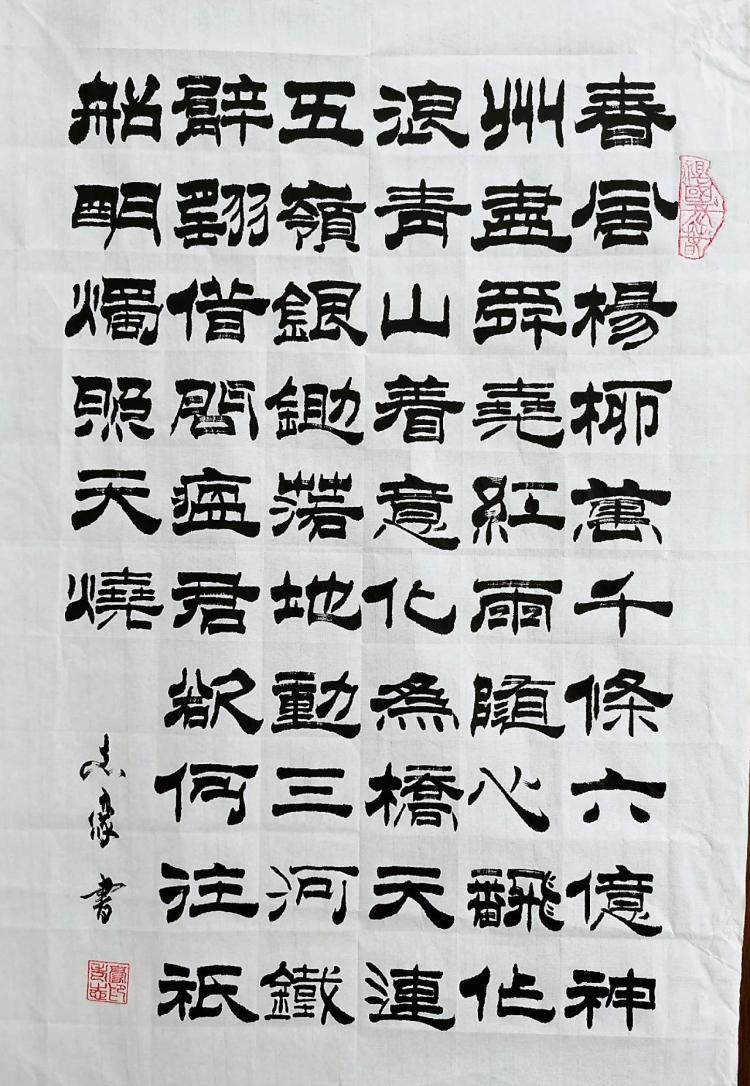 春風楊柳萬千條六億神
州盡舜堯紅雨随心飜作
浪青山着意化為橋天連
五嶺銀鋤落地動三河鐵
臂借問瘟君欲何往祇
船明燭照天燒
志豪書